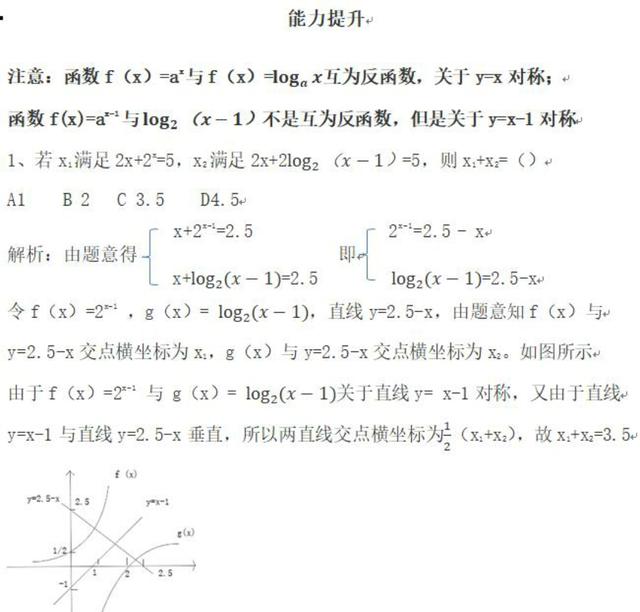 能力提升
注意：函数 f（x）=aˣ与 f（x）=logₐ x互为反函数，关于 y=x 对称；
函数 f(x)=aˣ⁻¹与log₂（x－1）不是互为反函数，但是关于 y=x-1 对称
1、若 x₁满足 2x+2ˣ=5，x₂满足 2x+2log₂（x－1）=5，则 x₁+x₂=（）
A1 B 2 C 3.5 D4.5
x+2ˣ⁻¹=2.5 2ˣ⁻¹=2.5 - x
解析：由题意得 即
x+log₂(x－1)=2.5 log₂(x－1)=2.5-x
令 f（x）=2ˣ⁻¹ ，g（x）= log₂(x－1)，直线 y=2.5-x，由题意知 f（x）与
y=2.5-x 交点横坐标为 x₁，g（x）与 y=2.5-x 交点横坐标为 x₂。如图所示
由于 f（x）=2ˣ⁻¹ 与 g（x）= log₂(x－1)关于直线 y= x-1 对称，又由于直线
y=x-1 与直线 y=2.5-x 垂直，所以两直线交点横坐标为½（x₁+x₂），故 x₁+x₂=3.5
f (x)
y=2.5-x 2.5 y=x-1
g(x)
1/2
1 2 2.5
-1